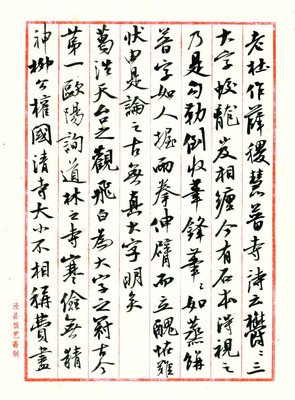 老杜作薛稷慧普寺詩云鬱〻三
大字蛟龍岌相纏今有石本得視之
乃是勾勒倒收筆鋒筆〻如蒸餅
普字如人握兩拳伸臂而立醜怪難
狀由是論之古無真大字明矣
葛洪天台之觀飛白為大字之冠古今
第一歐陽詢道林之寺寒儉無精
神柳公權國清寺大小不相稱費盡